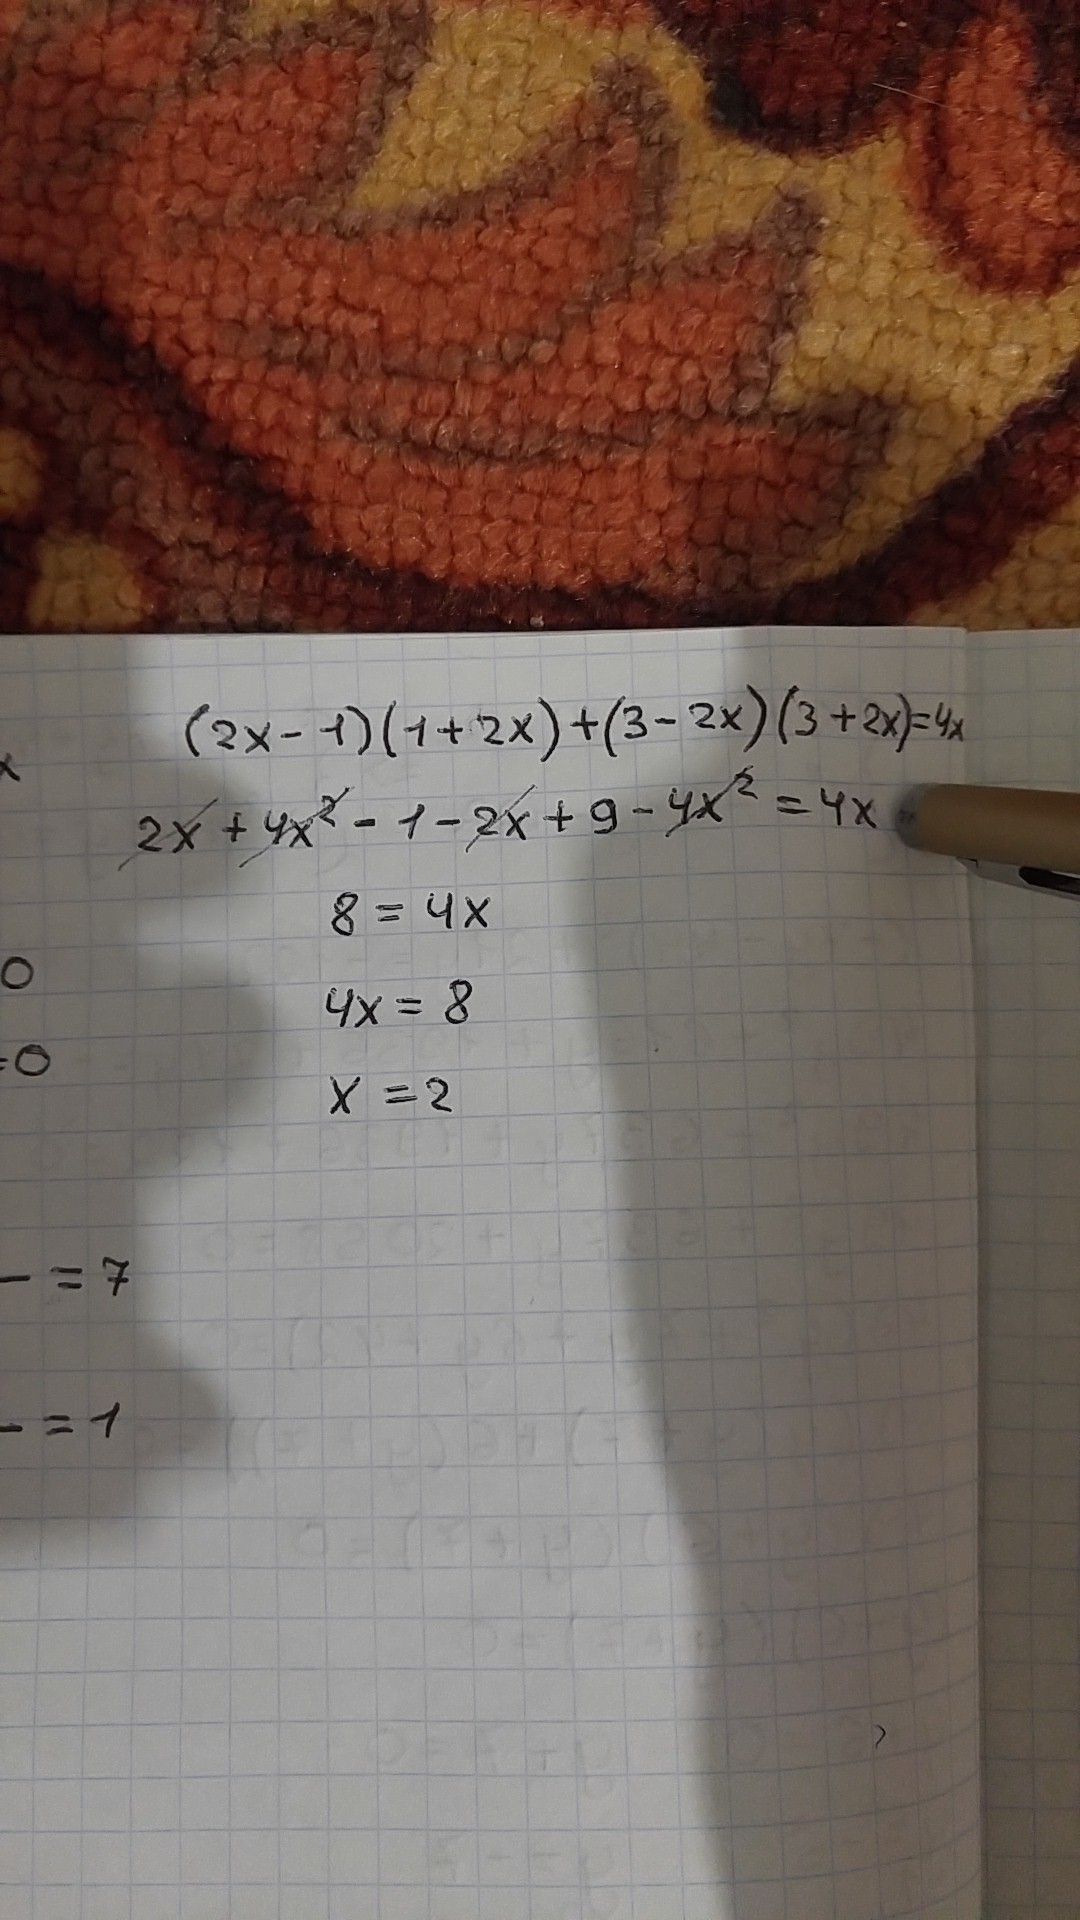 (2x-1)(1+2x)+(3-2x)(3+2x)=4x
x
2x+4x²-1-2x+9-4x²=4x
8=4x
0
4x=8
=0
x=2
- =7
- =1